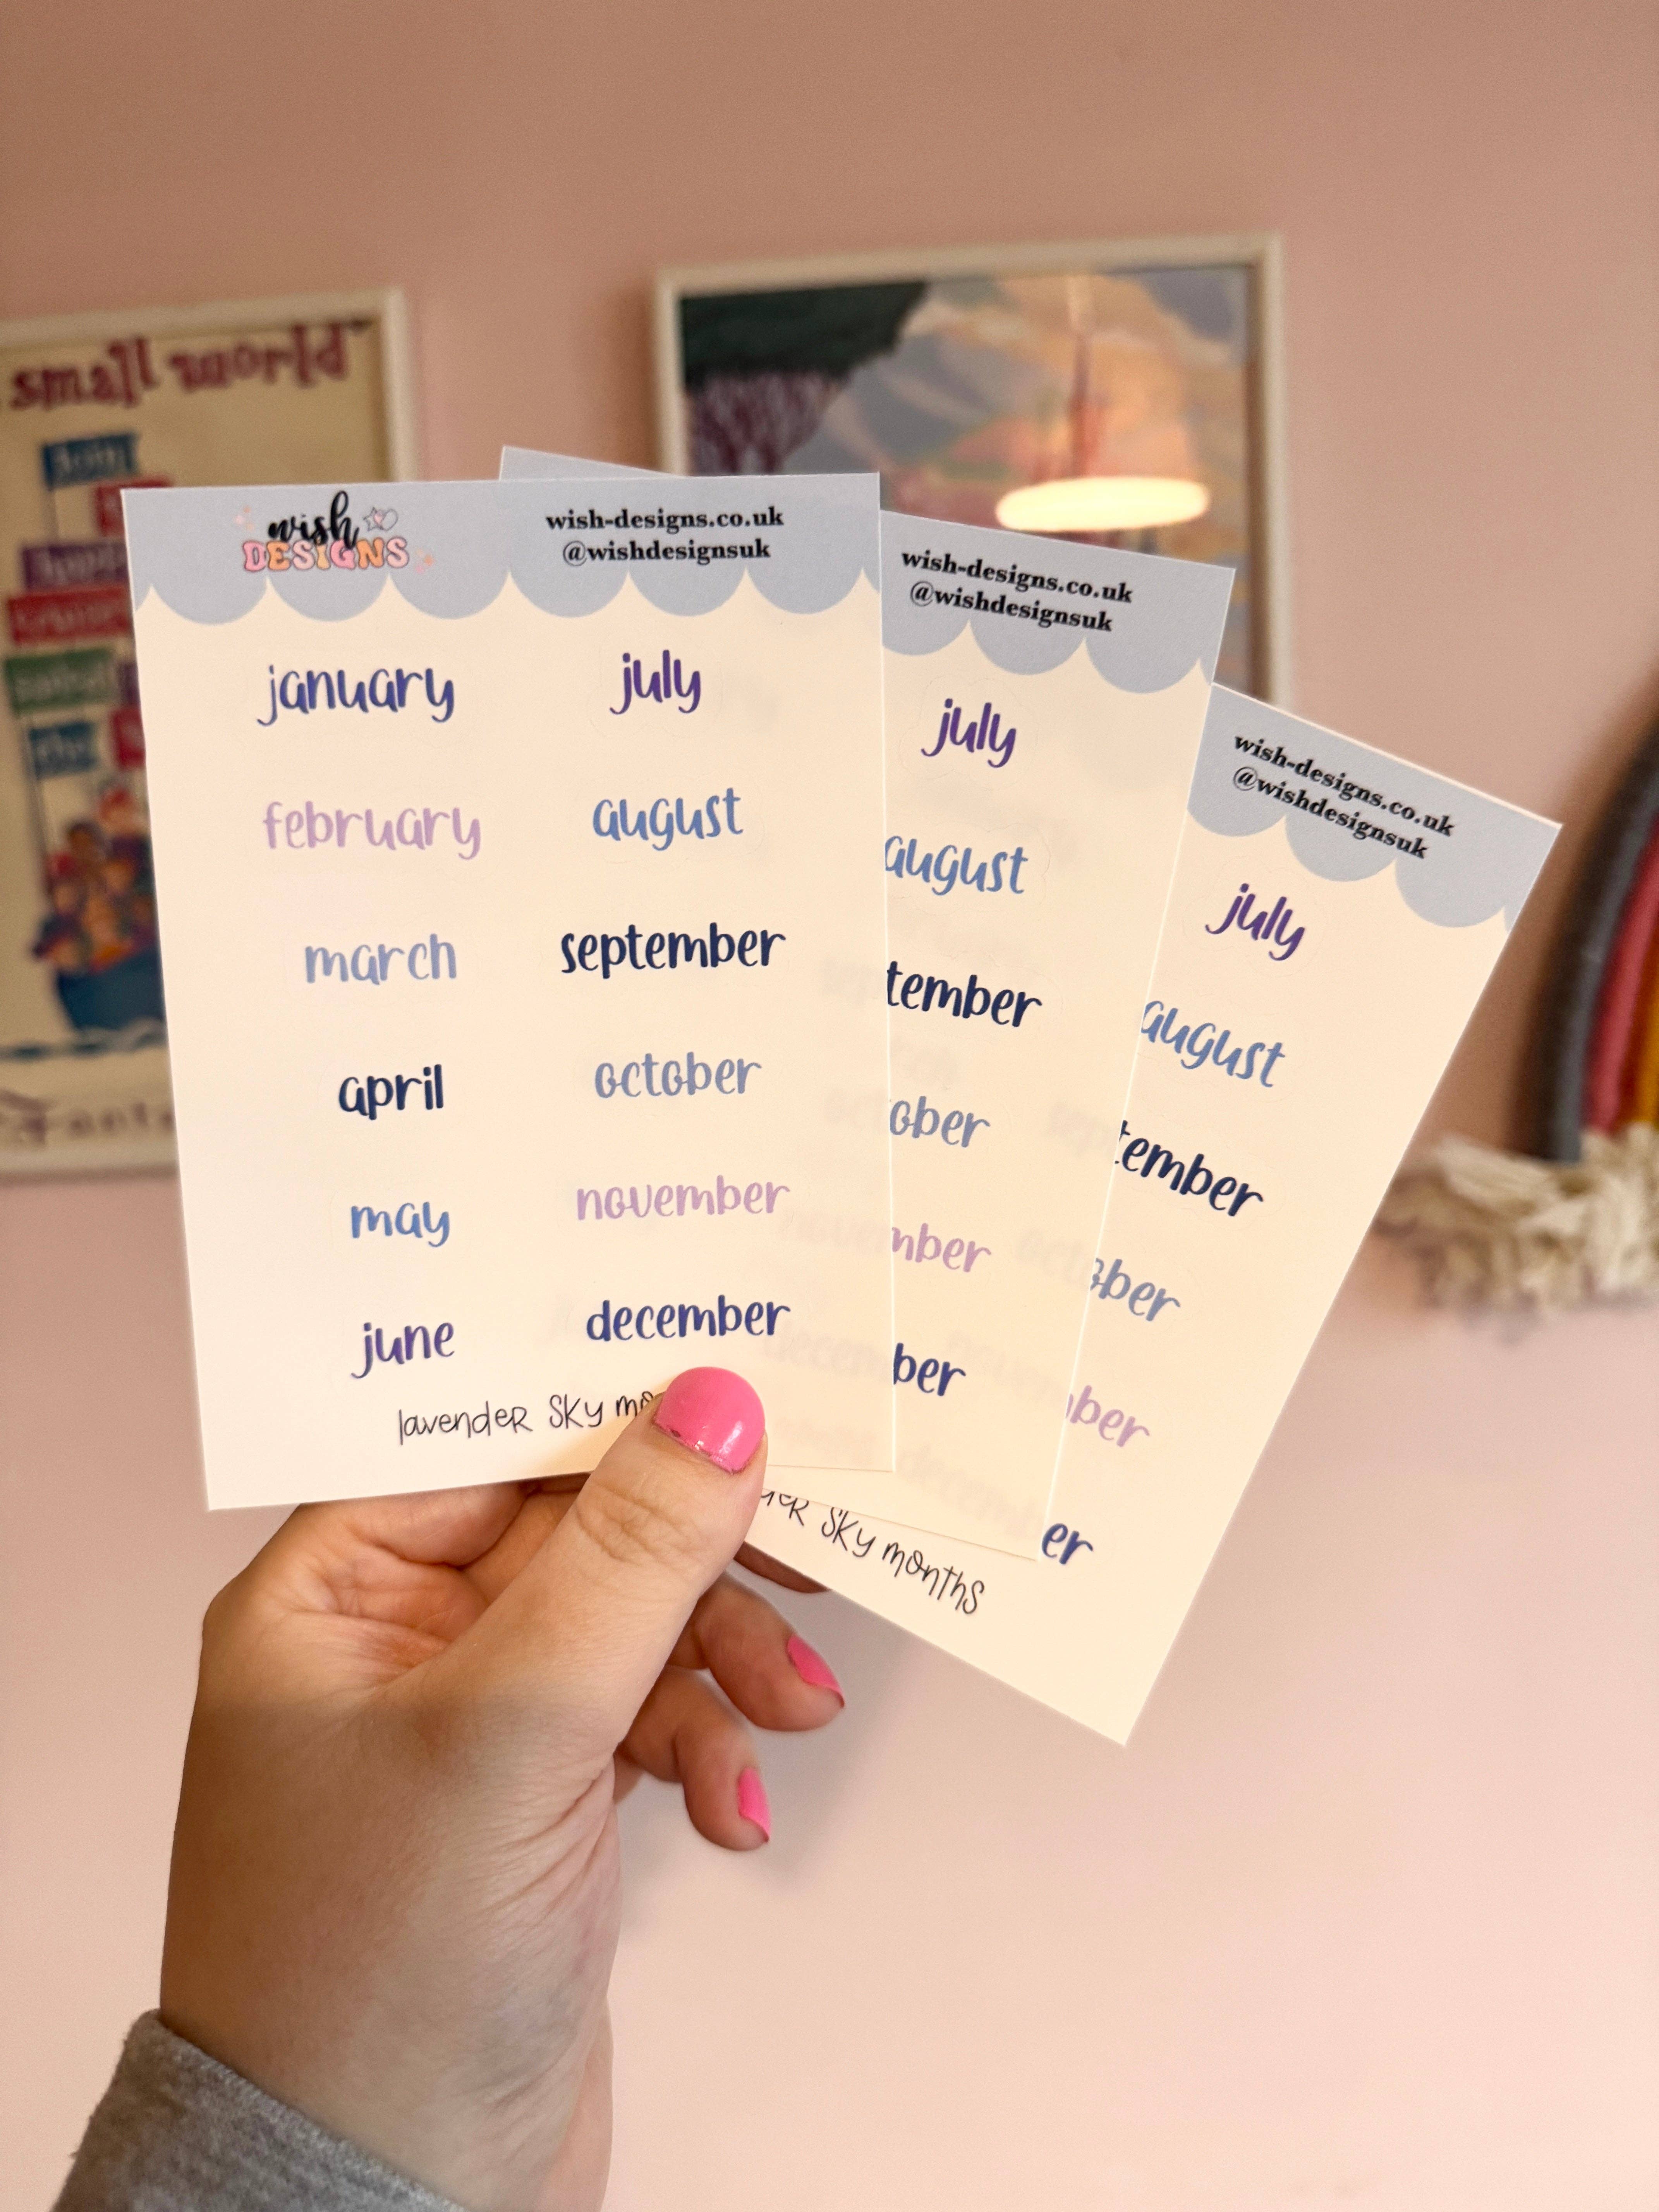 small world
Join
wish
DESIGNS
wish-designs.co.uk
@wishdesignsuk
january
february
march
april
may
june
july
august
september
october
november
december
lavender sky mo
wish-designs.co.uk
@wishdesignsuk
july
august
tember
ober
mber
ber
wish-designs.co.uk
@wishdesignsuk
july
august
tember
ober
ber
er
sky months